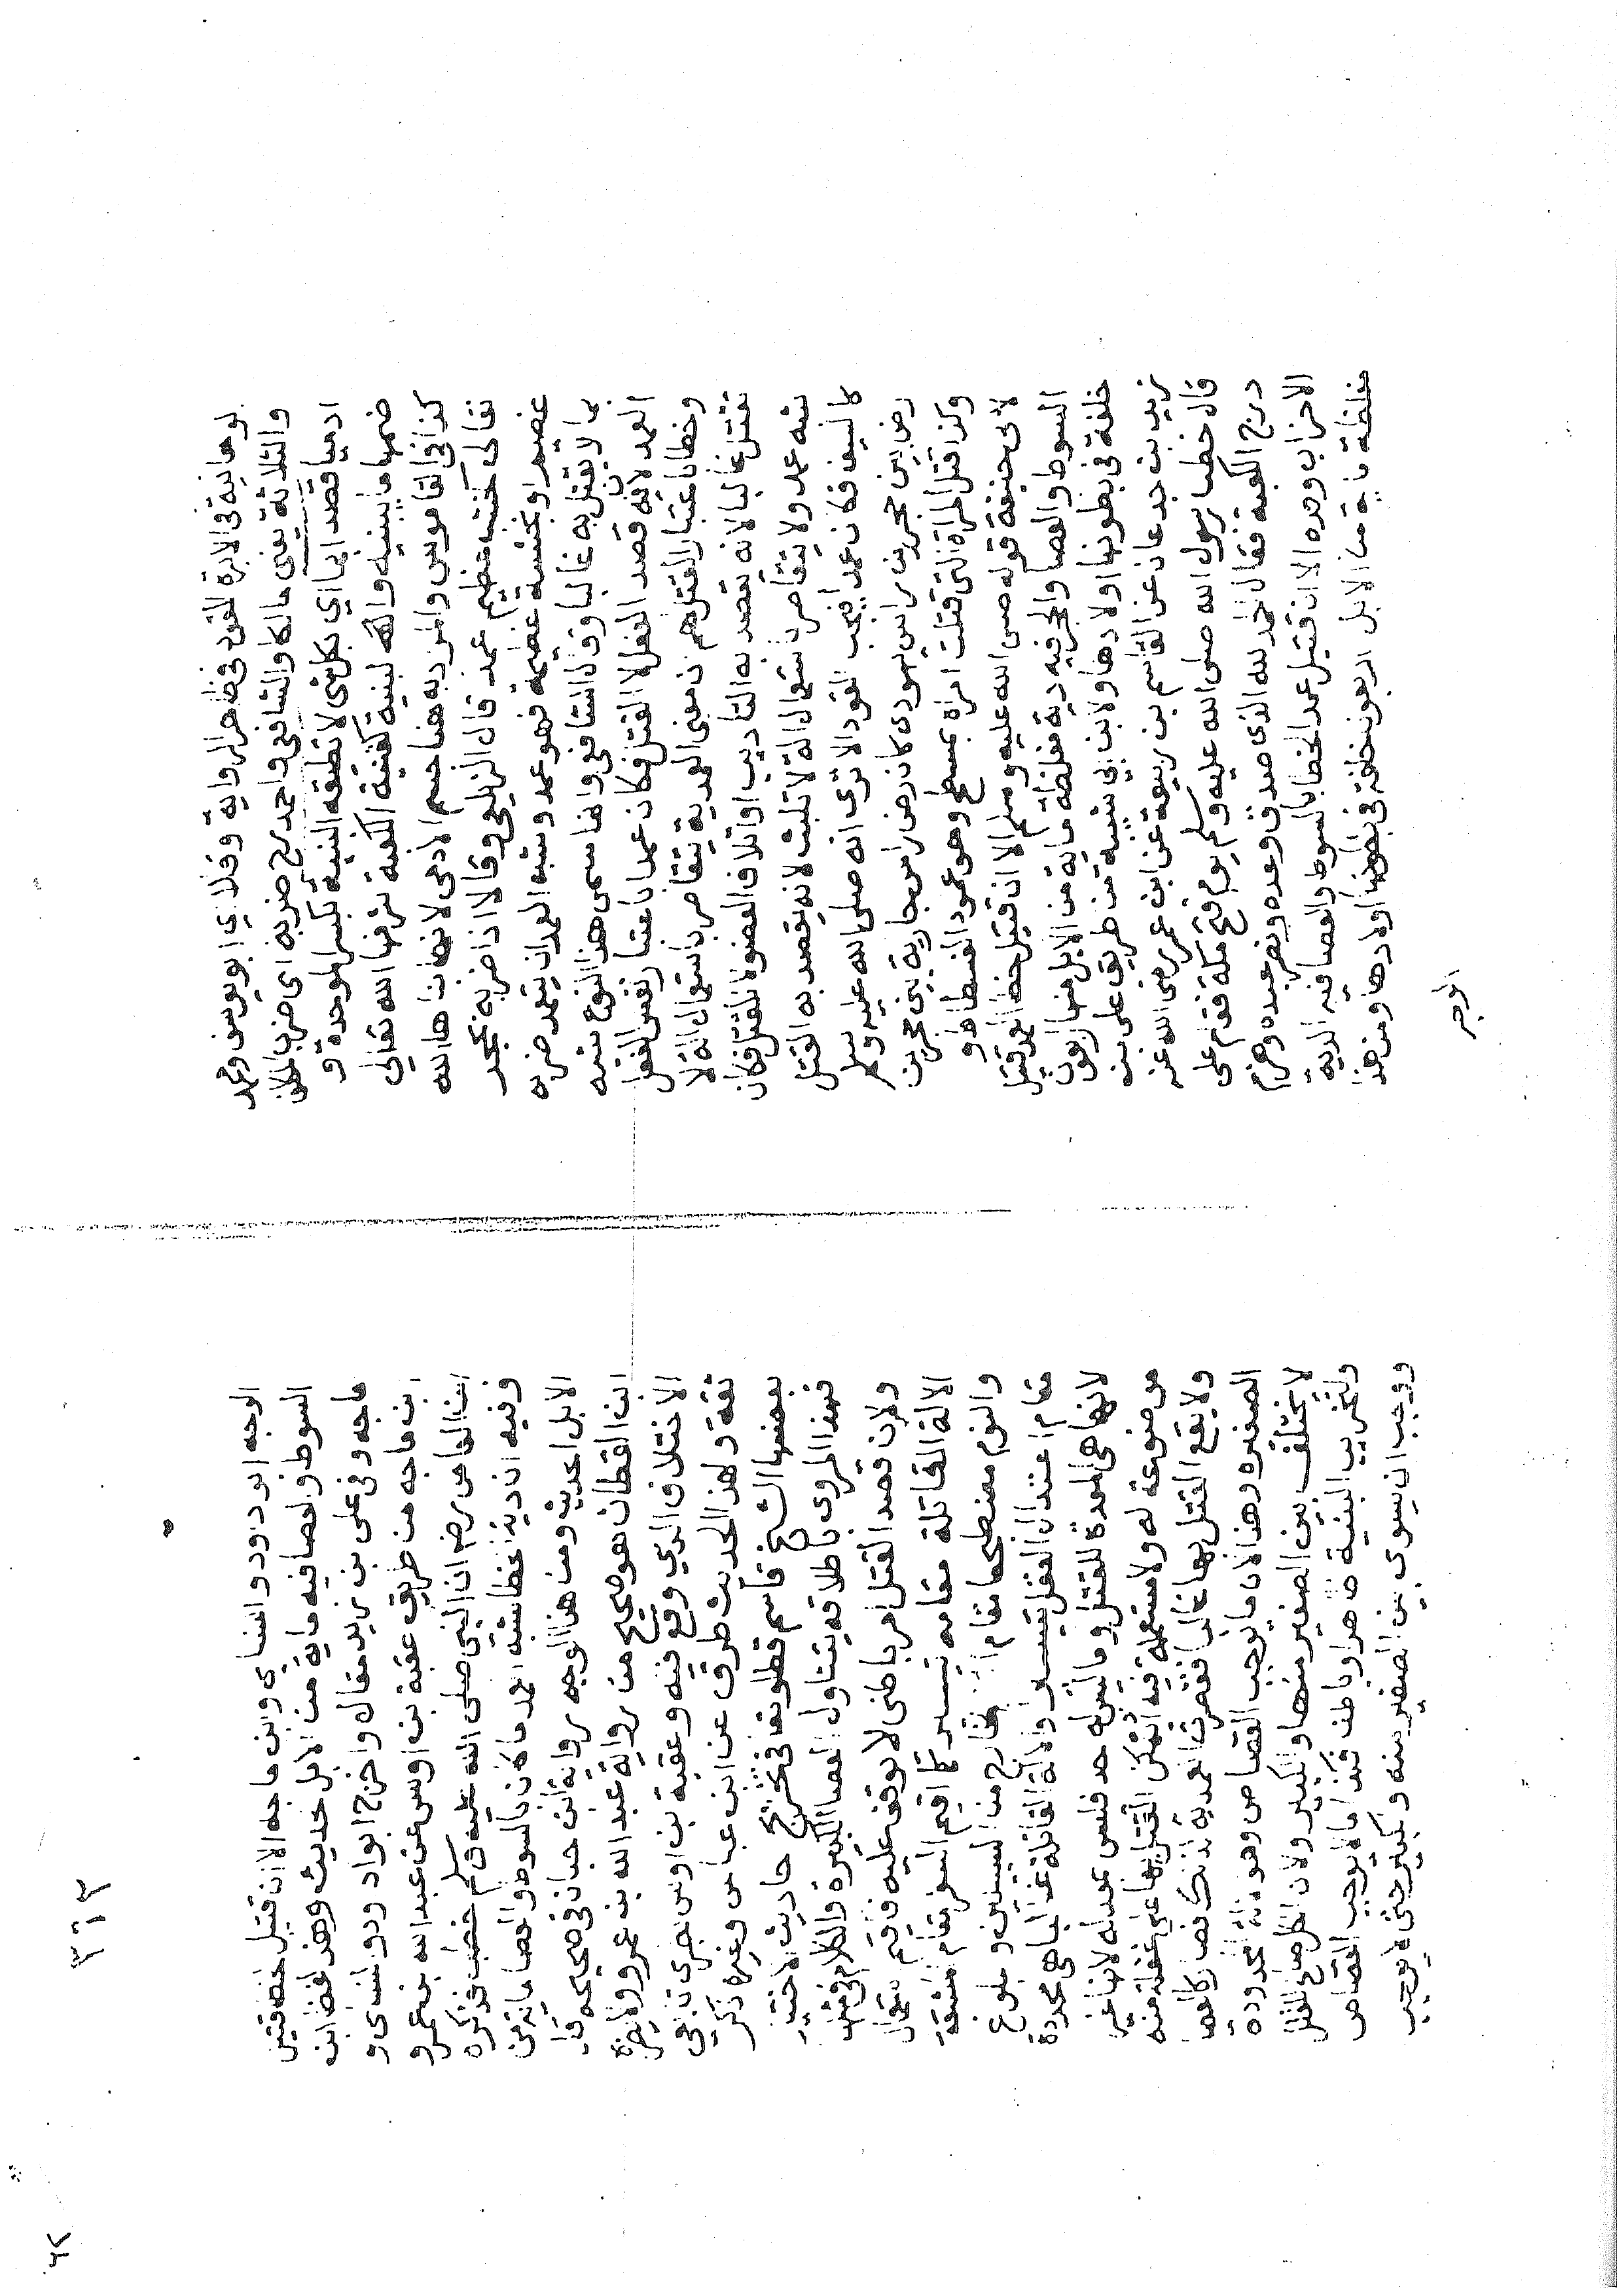 لوحانية في الابرة للقود في ظاهر الرواية وقالا اي ابو يوسف ومحمد
والثلاثة يعني مالكا والشافعي واحمد رح ضربه اى ضرب القاتل
ادميا قصدا بما اي بكل شى لا تطيقه البنية بكسر الموحدة و
ضمها ما بنيته والله لبنية كغنية الكعبة شرفها الله تعالى
كذا في القاموس والمراد به هنا جسم الادمى لانها بناها الله
تعالى كخشب عظيم عمد قال الزيلعي وقالا اذا ضربه بحجر
عظيم او بخشبة عظيمة فهو عمد وشبه العمد ان يتعمد ضربه
بما لا يقتل به غالبا وقال الشافعي وانما سمى هذا النوع شبه
العمد لانه قصد الفعل لا القتل فكان عمدا باعتبار نفس الفعل
وخطا باعتبار القتل لهم ان معنى العمدية يتقاصر باستعمال الة لا
تقتل غالبا لانه يقصد به التاديب او اتلاف العضو لا القتل فكان
شبه عمد ولا يتقاصر باستعمال الة لا تلبث لانه يقصد به القتل
كالسيف فكان عمدا فيجب القود الا ترى انه صلى الله عليه وسلم
رض بين حجرين راس يهودى كان رض راس جارية بين حجرين
وكذا قتل المراة التى قتلت امراة بمسطح وهو عمود الفسطاط و
لابى حنيفة قوله صلى الله عليه وسلم الا ان قتيل خطا العمد قتيل
السوط والعصا والحجر فيه دية مغلظة ماية من الابل منها اربعون
خلفة في بطونها اولادها ولابن ابي شيبة من طريق على بن
زيد بن جدعان عن القاسم بن ربيعة عن ابن عمر رضي الله عنه
قال خطب رسول الله صلى الله عليه وسلم يوم فتح مكة فقام على
درج الكعبة فقال الحمد لله الذى صدق وعده ونصر عبده وهزم
الاحزاب وحده الا ان قتيل عمد الخطا بالسوط والعصا فيه الدية
مغلظة ماية من الابل اربعون خلفة في بطونها اولادها ومن هذا
الوجه
الوجه ابو داود والنساي وابن ماجه الا ان قتيل خطا قتيل
السوط والعصا فيه ماية من الابل حديث وهذا لفظ ابن
ماجه وفي على بن زيد مقال واخرج ابو داود والنساى و
ابن ماجه من طريق عقبة بن اوس عن عبد الله بن عمرو
ابن العاص رض ان النبي صلى الله عليه وسلم خطب فذكره
وفيه ان دية الخطا شبه العمد ما كان بالسوط والعصا ماية من
الابل الحديث ومن هذا الوجه رواية ابن حبان في صحيحه قال
ابن القطان هو صحيح من رواية عبد الله بن عمرو ولا يضره
الاختلاف الذي وقع فيه وعقبة بن اوس بصرى تابعى
ثقة ولهذا الحديث طرق عن ابن عباس وغيره ذكر
بعضها الشيخ قاسم قطلوبغا في تخريج احاديث الاختيار
فهذا المروى باطلاقه يتناول العصا الكبيرة والكلام في مثلها
ولان قصد القتل امر باطنى لا يوقف عليه فاقيم استعمال
الالة القاتلة مقامه تيسيرا كما اقيم السفر مقام المشقة
والنوم مضطجعا مقام الخارج من السبيلين وبلوغ
مقام اعتدال العقل تيسيرا والالة القاتلة غالبا هى المحددة
لانها هى المعدة للقتل وما ليس له حد فليس بمعد له لانها غير
موضوعة له ولا مستعملة فيه اذ يمكن القتل بها على غفلة منه
ولا يقع القتل بها غالبا فقصرت العمدية لذلك فصار كالعصا
الصغيرة وهذا لان ما يوجب القصاص وهو الالة المحدودة
لا يختلف بين الصغير منها والكبير ولان الكل صالح للقتل
ولتخريب البنية ظاهرا وباطنا فكذا ما لا يوجب القصاص
ووجب ان يسوى بين الصغير منه والكبير حتى لا يوجب